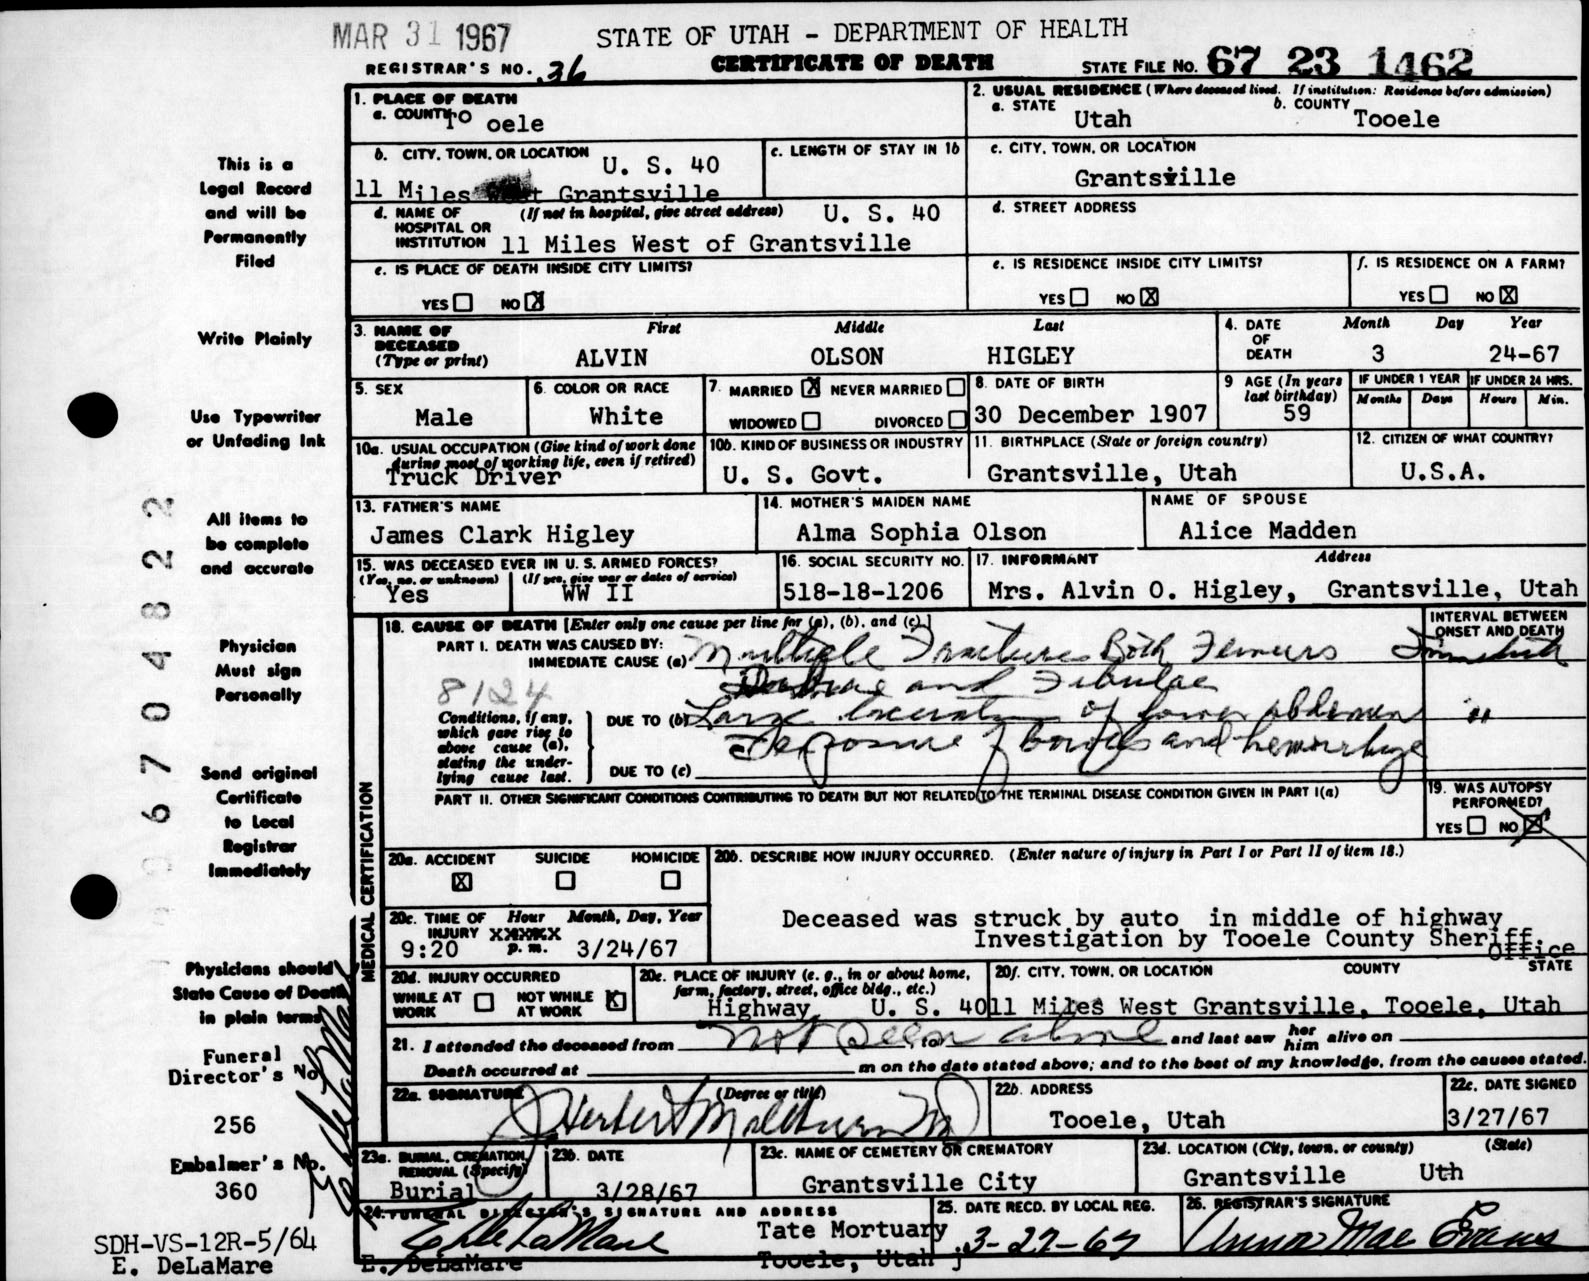 MAR 31 1967
STATE OF UTAH - DEPARTMENT OF HEALTH
REGISTRAR'S NO. 36
CERTIFICATE OF DEATH
STATE FILE NO. 67 23 1462
This is a
Legal Record
and will be
Permanently
Filed
Write Plainly
Use Typewriter
or Unfading Ink
All items to
be complete
and accurate
Physician
Must sign
Personally
Send original
Certificate
to Local
Registrar
Immediately
Physicians should
State Cause of Death
in plain terms
Funeral
Director's No
256
Embalmer's No.
360
SDH-VS-12R-5/64
E. DeLaMare
1. PLACE OF DEATH
a. COUNTY
TO oele
2. USUAL RESIDENCE (Where deceased lived. If institution: Residence before admission)
a. STATE
Utah
b. COUNTY
Tooele
b. CITY, TOWN, OR LOCATION
U. S. 40
11 Miles West Grantsville
c. LENGTH OF STAY IN 1b
c. CITY, TOWN, OR LOCATION
Grantsville
d. NAME OF (If not in hospital, give street address) U. S. 40
HOSPITAL OR
INSTITUTION 11 Miles West of Grantsville
d. STREET ADDRESS
e. IS PLACE OF DEATH INSIDE CITY LIMITS?
YES NO X
e. IS RESIDENCE INSIDE CITY LIMITS?
YES NO X
f. IS RESIDENCE ON A FARM?
YES NO X
3. NAME OF
DECEASED
(Type or print)
First Middle Last
ALVIN OLSON HIGLEY
4. DATE
OF
DEATH
Month Day Year
3 24-67
5. SEX
Male
6. COLOR OR RACE
White
7. MARRIED X NEVER MARRIED
WIDOWED DIVORCED
8. DATE OF BIRTH
30 December 1907
9 AGE (In years
last birthday)
59
IF UNDER 1 YEAR IF UNDER 24 HRS.
Months Days Hours Min.
10a. USUAL OCCUPATION (Give kind of work done
during most of working life, even if retired)
Truck Driver
10b. KIND OF BUSINESS OR INDUSTRY
U. S. Govt.
11. BIRTHPLACE (State or foreign country)
Grantsville, Utah
12. CITIZEN OF WHAT COUNTRY?
U.S.A.
13. FATHER'S NAME
James Clark Higley
14. MOTHER'S MAIDEN NAME
Alma Sophia Olson
NAME OF SPOUSE
Alice Madden
15. WAS DECEASED EVER IN U. S. ARMED FORCES?
(Yes, no, or unknown) (If yes, give war or dates of service)
Yes WW II
16. SOCIAL SECURITY NO.
518-18-1206
17. INFORMANT Address
Mrs. Alvin O. Higley, Grantsville, Utah
MEDICAL CERTIFICATION
18. CAUSE OF DEATH [Enter only one cause per line for (a), (b), and (c).]
INTERVAL BETWEEN
ONSET AND DEATH
PART I. DEATH WAS CAUSED BY:
IMMEDIATE CAUSE (a) Multiple Fractures Both Femurs
and Fibulae
8124
Conditions, if any,
which gave rise to
above cause (a),
stating the under-
lying cause last.
DUE TO (b) Large laceration of lower abdomen "
exposure of bowels and hemorrhage
DUE TO (c)
PART II. OTHER SIGNIFICANT CONDITIONS CONTRIBUTING TO DEATH BUT NOT RELATED TO THE TERMINAL DISEASE CONDITION GIVEN IN PART I(a)
19. WAS AUTOPSY
PERFORMED?
YES NO X
20a. ACCIDENT SUICIDE HOMICIDE
X
20b. DESCRIBE HOW INJURY OCCURRED. (Enter nature of injury in Part I or Part II of item 18.)
Deceased was struck by auto in middle of highway
Investigation by Tooele County Sheriff.
Office
20c. TIME OF Hour Month, Day, Year
INJURY XXXXX
9:20 p. m. 3/24/67
20d. INJURY OCCURRED
WHILE AT WORK NOT WHILE AT WORK X
20e. PLACE OF INJURY (e. g., in or about home,
farm, factory, street, office bldg., etc.)
Highway, U. S. 40
20f. CITY, TOWN, OR LOCATION COUNTY STATE
11 Miles West Grantsville, Tooele, Utah
21. I attended the deceased from not seen alive to and last saw her him alive on
Death occurred at m on the date stated above; and to the best of my knowledge, from the causes stated.
22a. SIGNATURE (Degree or title)
22b. ADDRESS
Tooele, Utah
22c. DATE SIGNED
3/27/67
23a. BURIAL, CREMATION,
REMOVAL (Specify)
Burial
23b. DATE
3/28/67
23c. NAME OF CEMETERY OR CREMATORY
Grantsville City
23d. LOCATION (City, town, or county) (State)
Grantsville Uth
24. FUNERAL DIRECTOR'S SIGNATURE AND ADDRESS
E. DeLaMare
Tate Mortuary
Tooele, Utah
25. DATE RECD. BY LOCAL REG.
3-27-67
26. REGISTRAR'S SIGNATURE
Anna Mae Evans